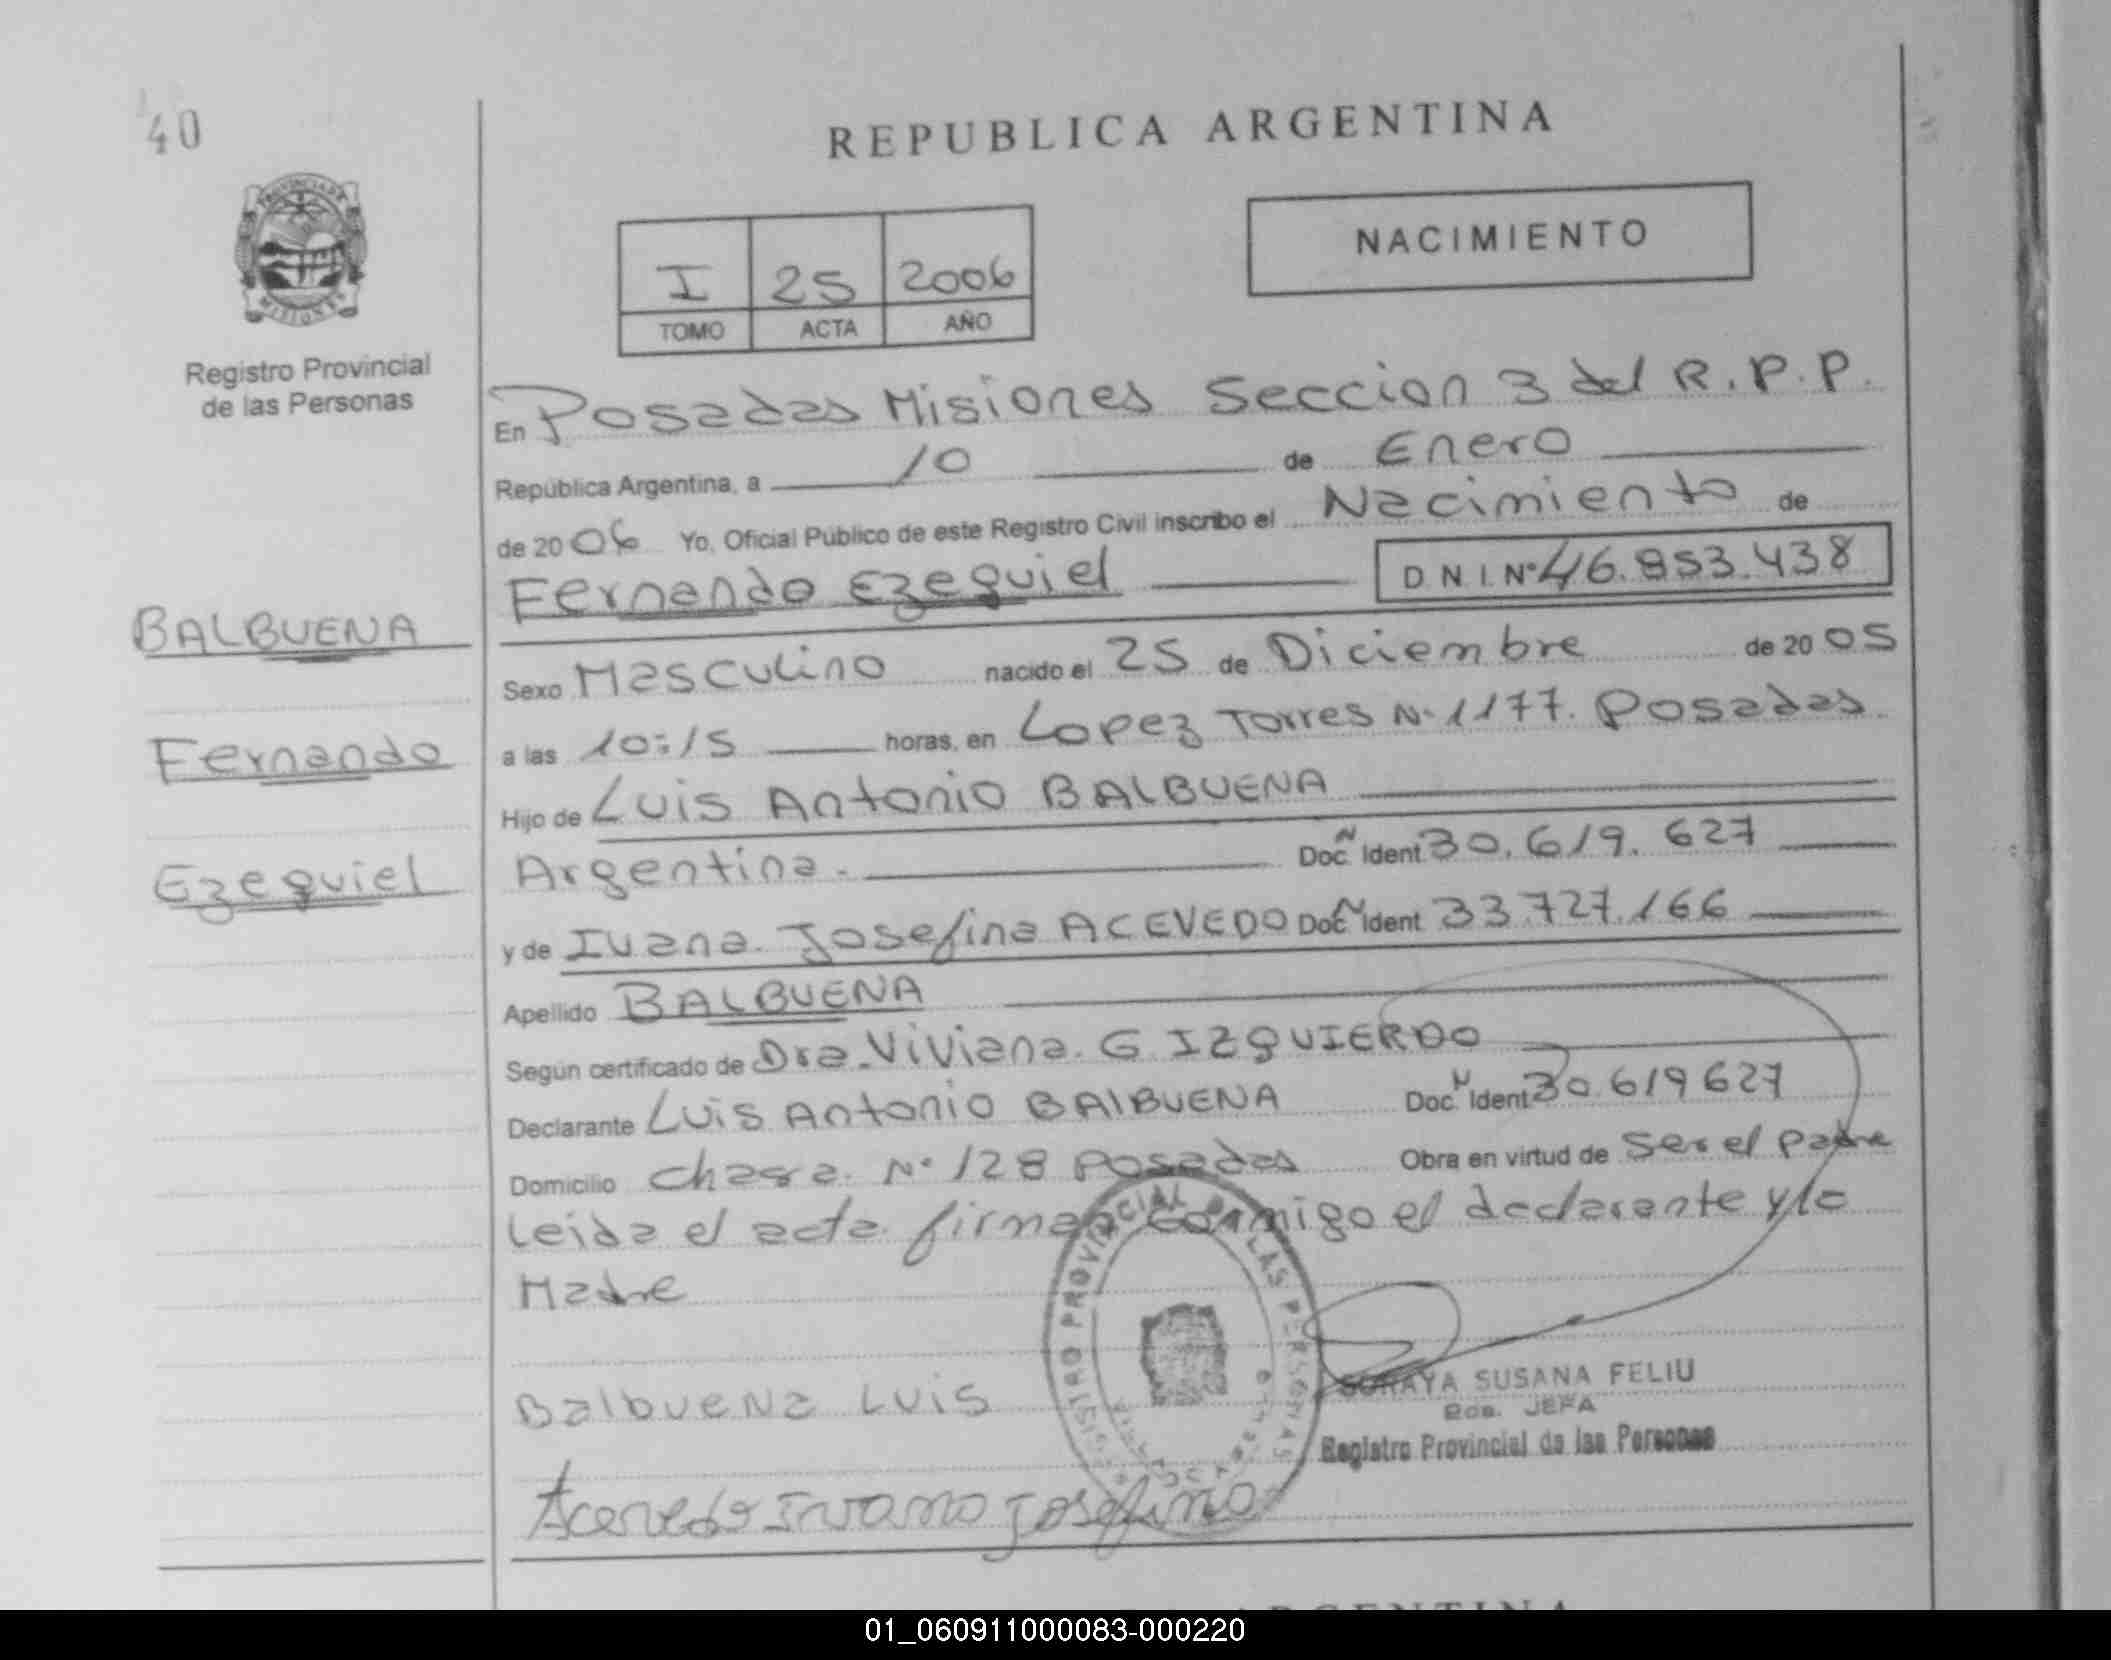 40
REPUBLICA ARGENTINA
PROVINCIA DE
MISIONES
Registro Provincial
de las Personas
NACIMIENTO
I 25 2006
TOMO ACTA AÑO
En Posadas Misiones Seccion 3 del R.P.P.
República Argentina, a 10 de Enero
de 2006 Yo, Oficial Público de este Registro Civil inscribo el Nacimiento de
Fernando Ezequiel D N I. Nº 46.853.438
BALBUENA
Fernando
Ezequiel
Sexo Masculino nacido el 25 de Diciembre de 2005
a las 10:15 horas, en Lopez Torres Nº 1177. Posadas
Hijo de Luis Antonio BALBUENA
Argentina. Doc. N Ident 30.619.627
y de Ivana Josefina ACEVEDO Doc. N Ident 33.727.166
Apellido BALBUENA
Según certificado de Dra. Viviana G IZQUIERDO
Declarante Luis Antonio BAlBUENA Doc. N Ident 30.619627
Domicilio Chacra Nº 128 Posadas Obra en virtud de Ser el padre
Leida el acta firman conmigo el declarante y la
Madre
REGISTRO PROVINCIAL DE LAS PERSONAS
Balbuena Luis
SORAYA SUSANA FELIU
JEFA
Registro Provincial de las Personas
Acevedo Ivana Josefina
ARGENTINA
01_060911000083-000220